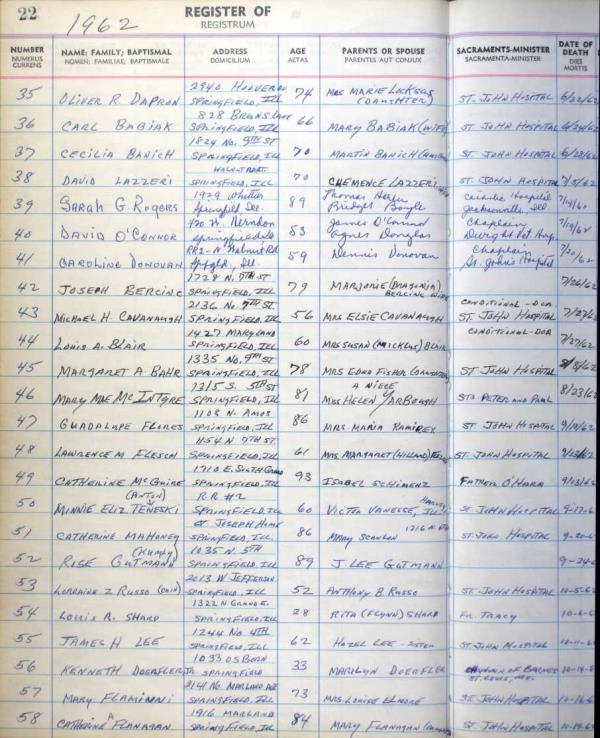 22
1962
REGISTER OF
REGISTRUM
NUMBER NAME: FAMILY; BAPTISMAL ADDRESS AGE PARENTS OR SPOUSE SACRAMENTS-MINISTER DATE OF DEATH
NUMERUS CURRENS NOMEN: FAMILIAE; BAPTISMALE DOMICILIUM AETAS PARENTES AUT CONJUX SACRAMENTA-MINISTER DIES MORTIS
2940 HOOVER
35 OLIVER R. DAPRON SPRINGFIELD, ILL 74 MRS MARIE (DAUGHTER) ST. JOHN HOSPITAL 6/22/62
828 BRUNS LANE
36 CARL BABIAK SPRINGFIELD, ILL 66 MARY BABIAK (WIFE) ST JOHN HOSPITAL 6/24/62
1824 NO. 9TH ST
37 CECILIA BANICH SPRINGFIELD, ILL 70 MARTIN BANICH ST. JOHN HOSPITAL 6/23/62
38 DAVID LAZZERI SPRINGFIELD, ILL 70 CLEMENCE LAZZERI ST. JOHN HOSPITAL 7/5/62
1929 Whittier Thomas
39 Sarah G. Rogers Springfield Ill. 89 Bridget Boyle Jacksonville, Ill
W. Herndon James O'Connor Chaplain
40 DAVID O'CONNOR Springfield Ill 53 Agnes Douglas Dwight Vet Hosp. 7/19/62
RR2-N Walnut Rd Chaplain
41 CAROLINE DONOVAN Spfgld, Ill. 59 Dennis Donovan St. John's Hospital 7/20/62
1728 N. 7TH ST 7/26/62
42 JOSEPH BERCINC SPRINGFIELD, ILL 79 MARJORIE
2136 NO. 7TH ST. CONDITIONAL-DOA
43 MICHAEL H. CAVANAUGH SPRINGFIELD, ILL 56 MRS ELSIE CAVANAUGH ST. JOHN HOSPITAL 7/27/62
1427 MARYLAND CONDITIONAL-DOA
44 LOUIS A. BLAIR SPRINGFIELD, ILL 60 MRS SUSAN (MICKLUS) BLAIR 7/27/62
1335 NO. 9TH ST
45 MARGARET A BAHR SPRINGFIELD, ILL 78 MRS EDNA FISHER (DAUGHTER) ST JOHN HOSPITAL 8/5/62
1315 S. 5TH ST A NIECE
46 MARY MAE MCINTYRE SPRINGFIELD, ILL 81 MISS HELEN YARBOUGH STS. PETER AND PAUL 8/23/62
1108 N. AMOS
47 GUADALUPE FLORES SPRINGFIELD, ILL 86 MRS. MARIA RAMIREX ST JOHN HOSPITAL 9/10/62
1154 N 7TH ST
48 LAWRENCE M FLESCH SPRINGFIELD, ILL 61 MRS. MARGARET ST JOHN HOSPITAL
1710 E. SOUTH GRAND
49 CATHERINE MCGUIRE SPRINGFIELD, ILL 93 ISABEL SCHIMENZ FATHER O'HARA 9/13/62
(ANTON) R.R #2
50 MINNIE ELIZ TENESKI SPRINGFIELD ILL 60 VICTOR VANESSE, ILL ST JOHN HOSPITAL 9-17-6
ST JOSEPH HOME 1216 N.
51 CATHERINE MAHONEY SPRINGFIELD, ILL 86 MARY SCANLON ST. JOHN HOSPITAL 9-20-6
1035 N. 5TH
52 ROSE GUTMANN SPRINGFIELD ILL 89 J. LEE GUTMANN 9-24-6
2013 W JEFFERSON
53 LORRAINE Z RUSSO SPRINGFIELD, ILL 52 ANTHONY B RUSSO ST. JOHN HOSPITAL 10-5-62
1322 N GRAND E.
54 LOUIS R. SHARP SPRINGFIELD, ILL 28 RITA (FLYNN) SHARP FR. TRACY 10-6-6
1244 NO 4TH
55 JAMES H LEE SPRINGFIELD ILL 62 HAZEL LEE - SISTER ST JOHN HOSPITAL 10-11-6
1033 OSBORN
56 KENNETH DOERFLER JR SPRINGFIELD 33 MARILYN DOERFLER ST. LOUIS, MO. 10-14-6
2141 NO. MARLAND AVE
57 MARY FLAMINNI SPRINGFIELD, ILL 73 MRS LOUISE ELMORE ST JOHN HOSPITAL 10-16-6
1916 MARLAND
58 CATHERINE A FLANAGAN SPRINGFIELD, ILL 84 MARY FLANAGAN ST JOHN HOSPITAL 10-19-6